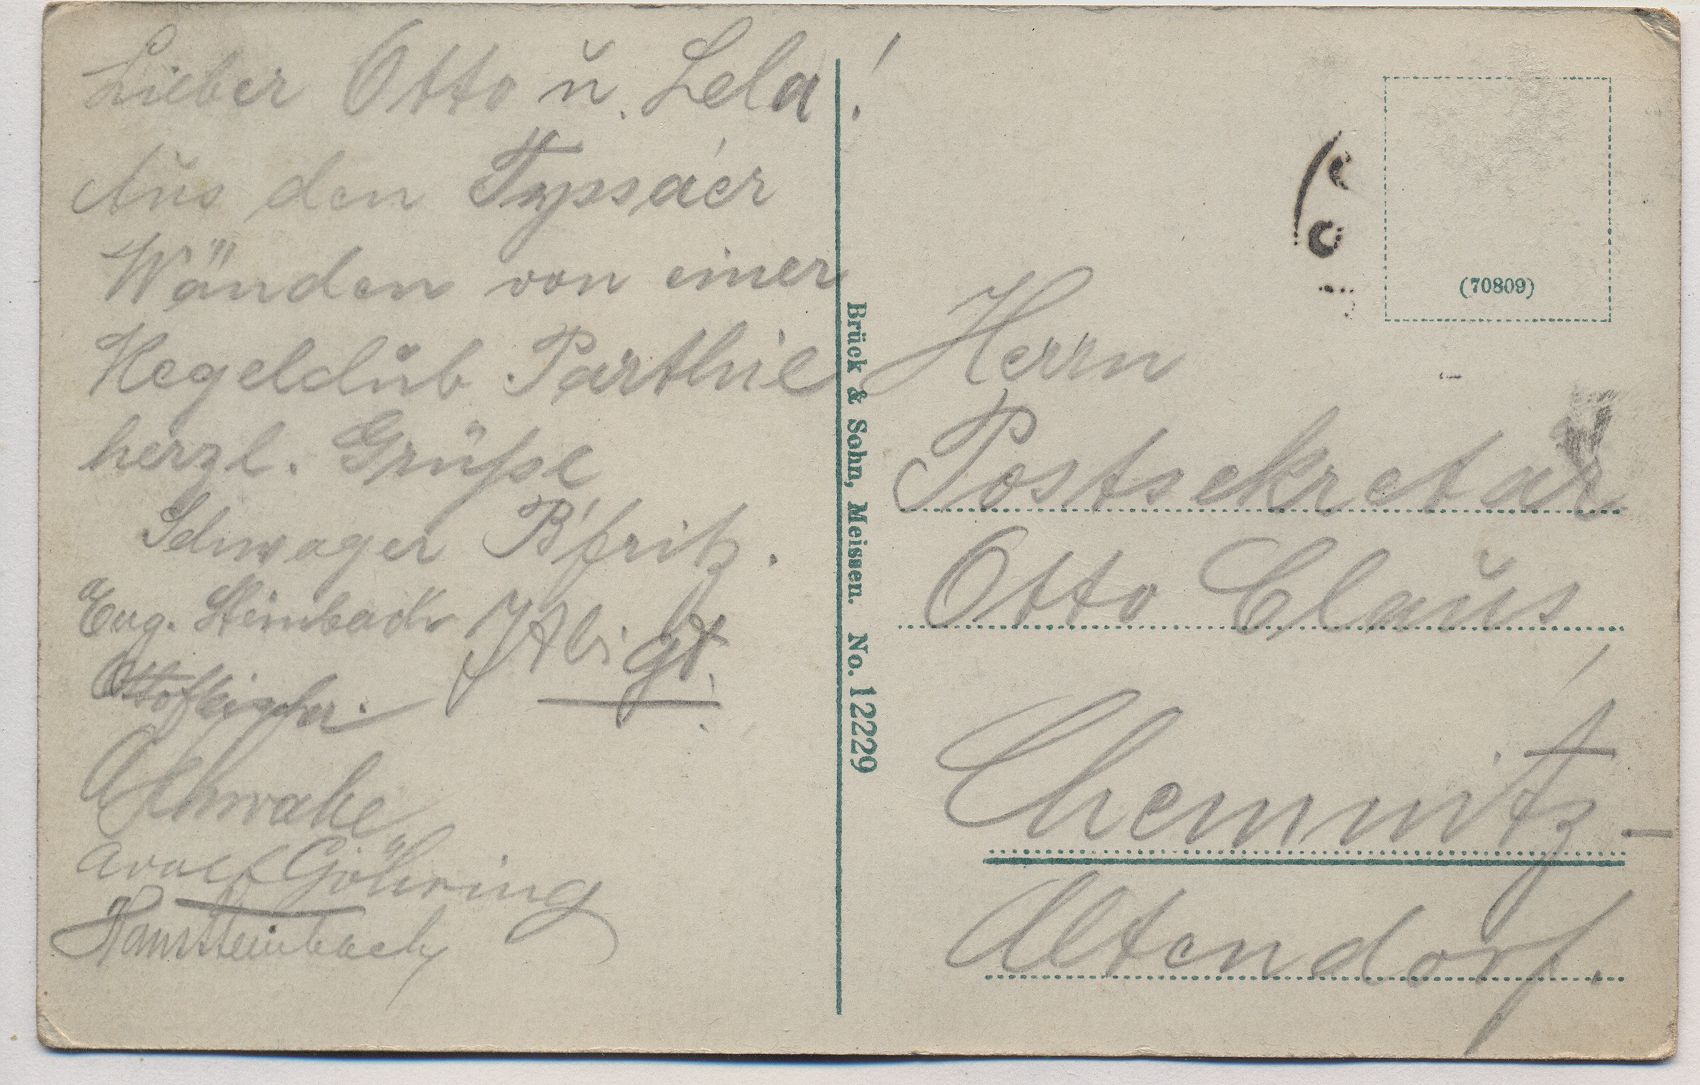 Lieber Otto u. Lela!
Aus den Tyssaer
Wänden von einer
Kegelclub Parthie
herzl. Grüsse
Schwager B'fritz.
Eug. Steinbach
Otto
Schwabe
Göhring
Hans Steinbach
Brück & Sohn, Meissen. No. 12229
(70809)
Herrn
Postsekretär
Otto Claus
Chemnitz-
Altendorf.